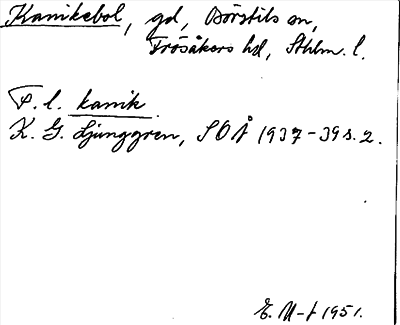 Kanikebol, gd, Börstils sn,
Frösåkers hd, Sthlm. l.
F. l. kanik
K. G. Ljunggren, SOÅ 1937-39 s. 2.
E. M-t 1951.